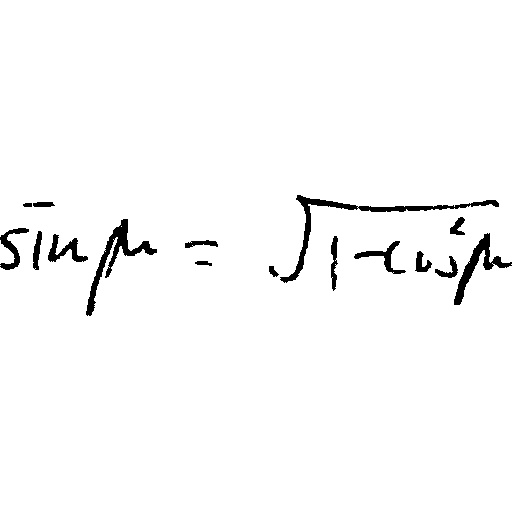 sin μ = √(1 - cos² μ)